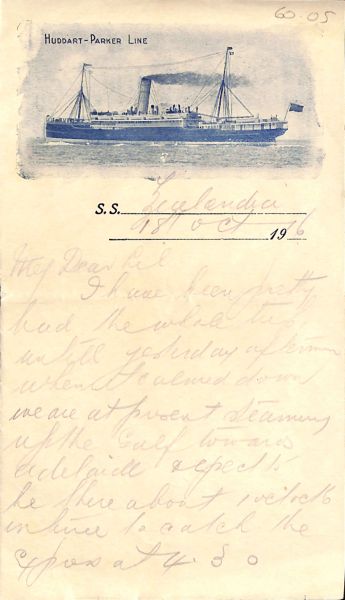 60-05
HUDDART-PARKER LINE
S.S. Zealandia
18 Oct 1916
My Dear
I have been pretty
bad the whole trip
until yesterday afternoon
when it calmed down
we are at present steaming
up the Gulf towards
adelaide expects
be there about 1 oclock
in time to catch the
Express at 4.30